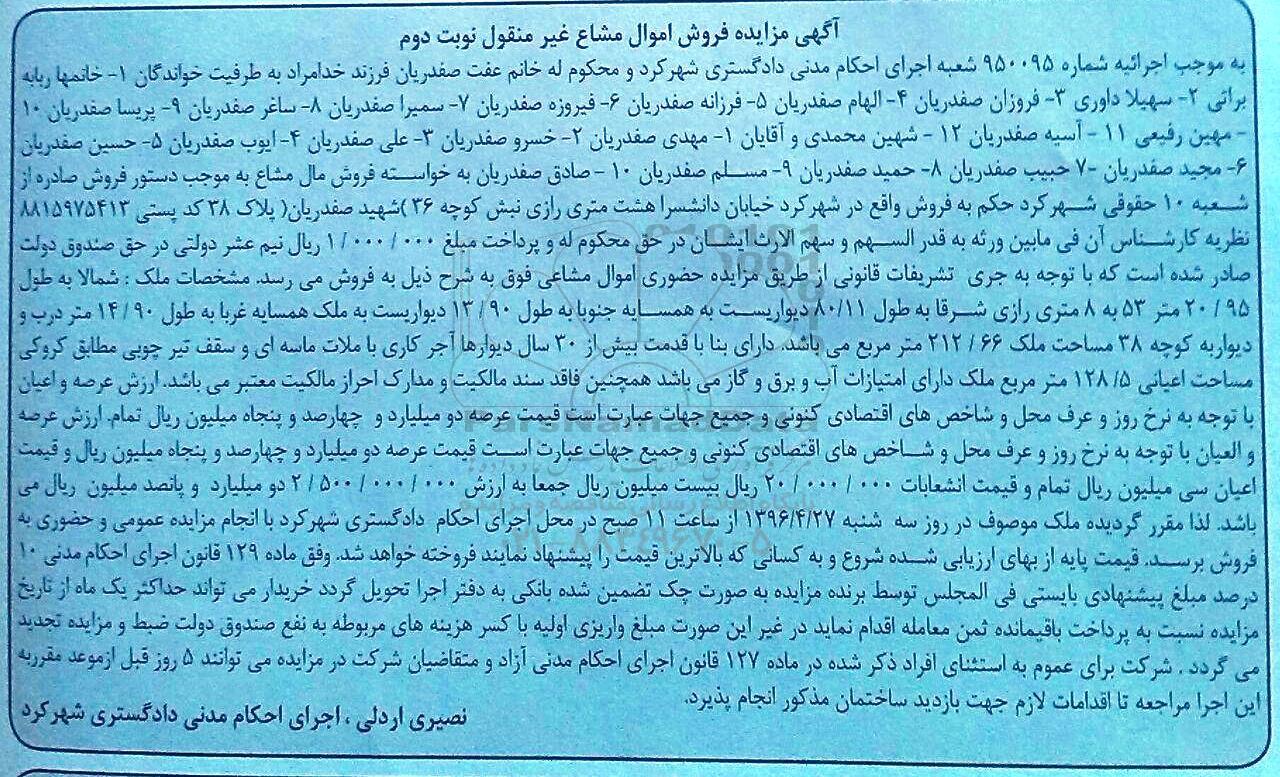 آگهی مزایده فروش اموال مشاع غیر منقول نوبت دوم
به موجب اجرائیه شماره ۹۵۰۰۹۵ شعبه اجرای احکام مدنی دادگستری شهرکرد و محکوم له خانم عفت صفدریان فرزند خدامراد به طرفیت خواندگان ۱- خانمها ربابه
براتی ۲- سهیلا داوری ۳- فروزان صفدریان ۴- الهام صفدریان ۵- فرزانه صفدریان ۶- فیروزه صفدریان ۷- سمیرا صفدریان ۸- ساغر صفدریان ۹- پریسا صفدریان ۱۰
- مهین رفیعی ۱۱ - آسیه صفدریان ۱۲ - شهین محمدی و آقایان ۱- مهدی صفدریان ۲- خسرو صفدریان ۳- علی صفدریان ۴- ایوب صفدریان ۵- حسین صفدریان
۶- مجید صفدریان ۷- حبیب صفدریان ۸- حمید صفدریان ۹- مسلم صفدریان ۱۰ - صادق صفدریان به خواسته فروش مال مشاع به موجب دستور فروش صادره از
شعبه ۱۰ حقوقی شهرکرد حکم به فروش واقع در شهرکرد خیابان دانشسرا هشت متری رازی نبش کوچه ۳۶ )شهید صفدریان( پلاک ۳۸ کد پستی ۸۸۱۵۹۷۵۴۱۳
نظریه کارشناس آن فی مابین ورثه به قدر السهم و سهم الارث ایشان در حق محکوم له و پرداخت مبلغ ۱/۰۰۰/۰۰۰ ریال نیم عشر دولتی در حق صندوق دولت
صادر شده است که با توجه به جری تشریفات قانونی از طریق مزایده حضوری اموال مشاعی فوق به شرح ذیل به فروش می رسد. مشخصات ملک : شمالا به طول
۲۰/۹۵ متر ۵۳ به ۸ متری رازی شرقا به طول ۸۰/۱۱ دیواریست به همسایه جنوبا به طول ۱۳/۹۰ دیواریست به ملک همسایه غربا به طول ۱۴/۹۰ متر درب و
دیواربه کوچه ۳۸ مساحت ملک ۲۱۲/۶۶ متر مربع می باشد. دارای بنا با قدمت بیش از ۳۰ سال دیوارها آجر کاری با ملات ماسه ای و سقف تیر چوبی مطابق کروکی
مساحت اعیانی ۱۲۸/۵ متر مربع ملک دارای امتیازات آب و برق و گاز می باشد همچنین فاقد سند مالکیت و مدارک احراز مالکیت معتبر می باشد. ارزش عرصه و اعیان
با توجه به نرخ روز و عرف محل و شاخص های اقتصادی کنونی و جمیع جهات عبارت است قیمت عرصه دو میلیارد و چهارصد و پنجاه میلیون ریال تمام. ارزش عرصه
و العیان با توجه به نرخ روز و عرف محل و شاخص های اقتصادی کنونی و جمیع جهات عبارت است قیمت عرصه دو میلیارد و چهارصد و پنجاه میلیون ریال و قیمت
اعیان سی میلیون ریال تمام و قیمت انشعابات ۲۰/۰۰۰/۰۰۰ ریال بیست میلیون ریال جمعا به ارزش ۲/۵۰۰/۰۰۰/۰۰۰ دو میلیارد و پانصد میلیون ریال می
باشد. لذا مقرر گردیده ملک موصوف در روز سه شنبه ۱۳۹۶/۴/۲۷ از ساعت ۱۱ صبح در محل اجرای احکام دادگستری شهرکرد با انجام مزایده عمومی و حضوری به
فروش برسد. قیمت پایه از بهای ارزیابی شده شروع و به کسانی که بالاترین قیمت را پیشنهاد نمایند فروخته خواهد شد. وفق ماده ۱۲۹ قانون اجرای احکام مدنی ۱۰
درصد مبلغ پیشنهادی بایستی فی المجلس توسط برنده مزایده به صورت چک تضمین شده بانکی به دفتر اجرا تحویل گردد خریدار می تواند حداکثر یک ماه از تاریخ
مزایده نسبت به پرداخت باقیمانده ثمن معامله اقدام نماید در غیر این صورت مبلغ واریزی اولیه با کسر هزینه های مربوطه به نفع صندوق دولت ضبط و مزایده تجدید
می گردد . شرکت برای عموم به استثنای افراد ذکر شده در ماده ۱۲۷ قانون اجرای احکام مدنی آزاد و متقاضیان شرکت در مزایده می توانند ۵ روز قبل ازموعد مقرربه
این اجرا مراجعه تا اقدامات لازم جهت بازدید ساختمان مذکور انجام پذیرد.
نصیری اردلی ، اجرای احکام مدنی دادگستری شهرکرد